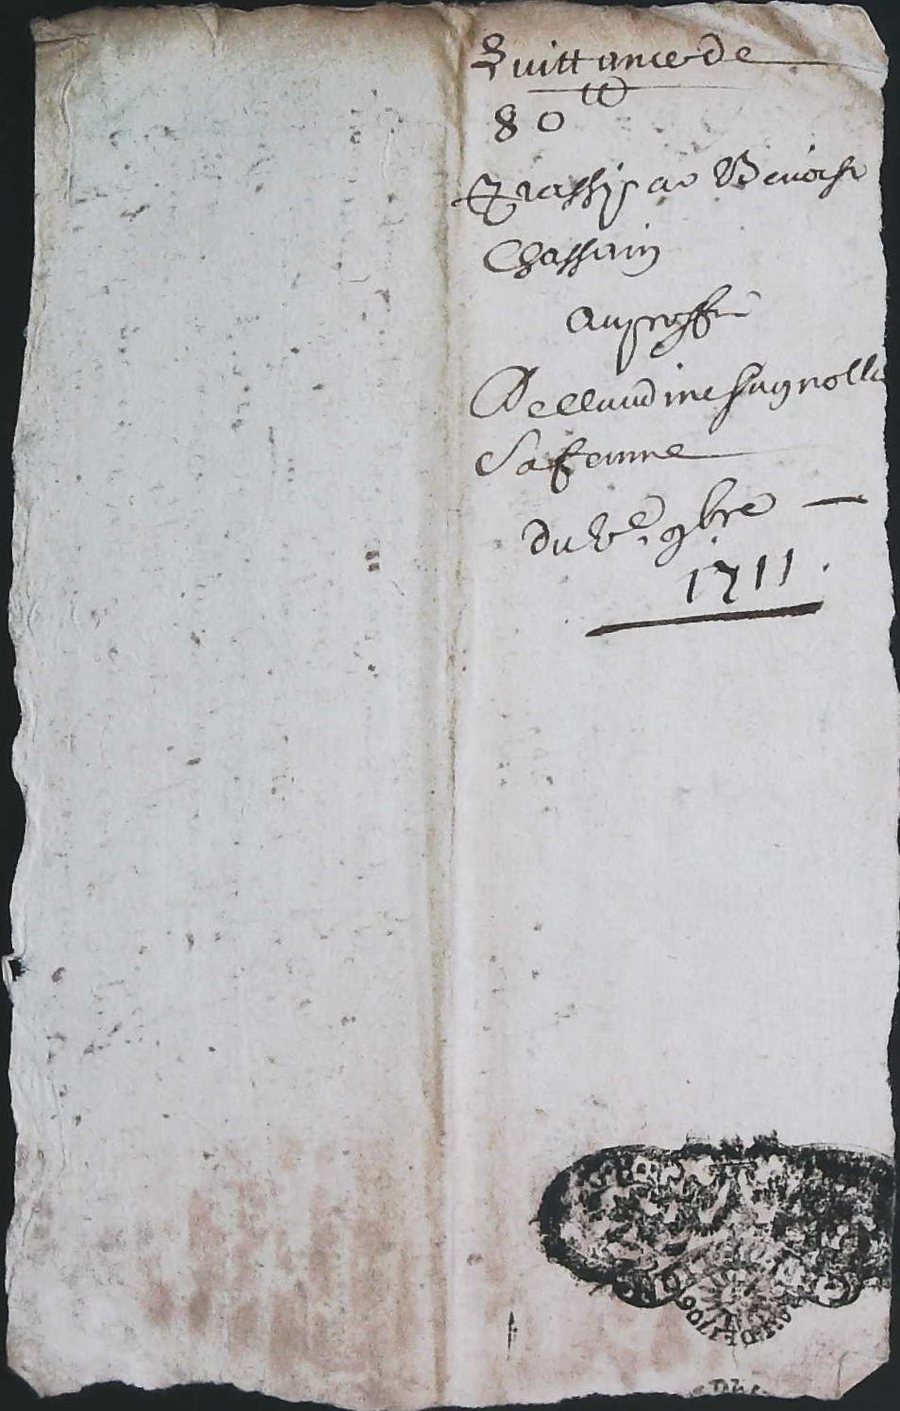 Quittance de
80 ₶
Grassis par Benoist
Chassain
au proffit
De Claudine Hugnolle
Sa femme
du Ve. 9bre
1711.